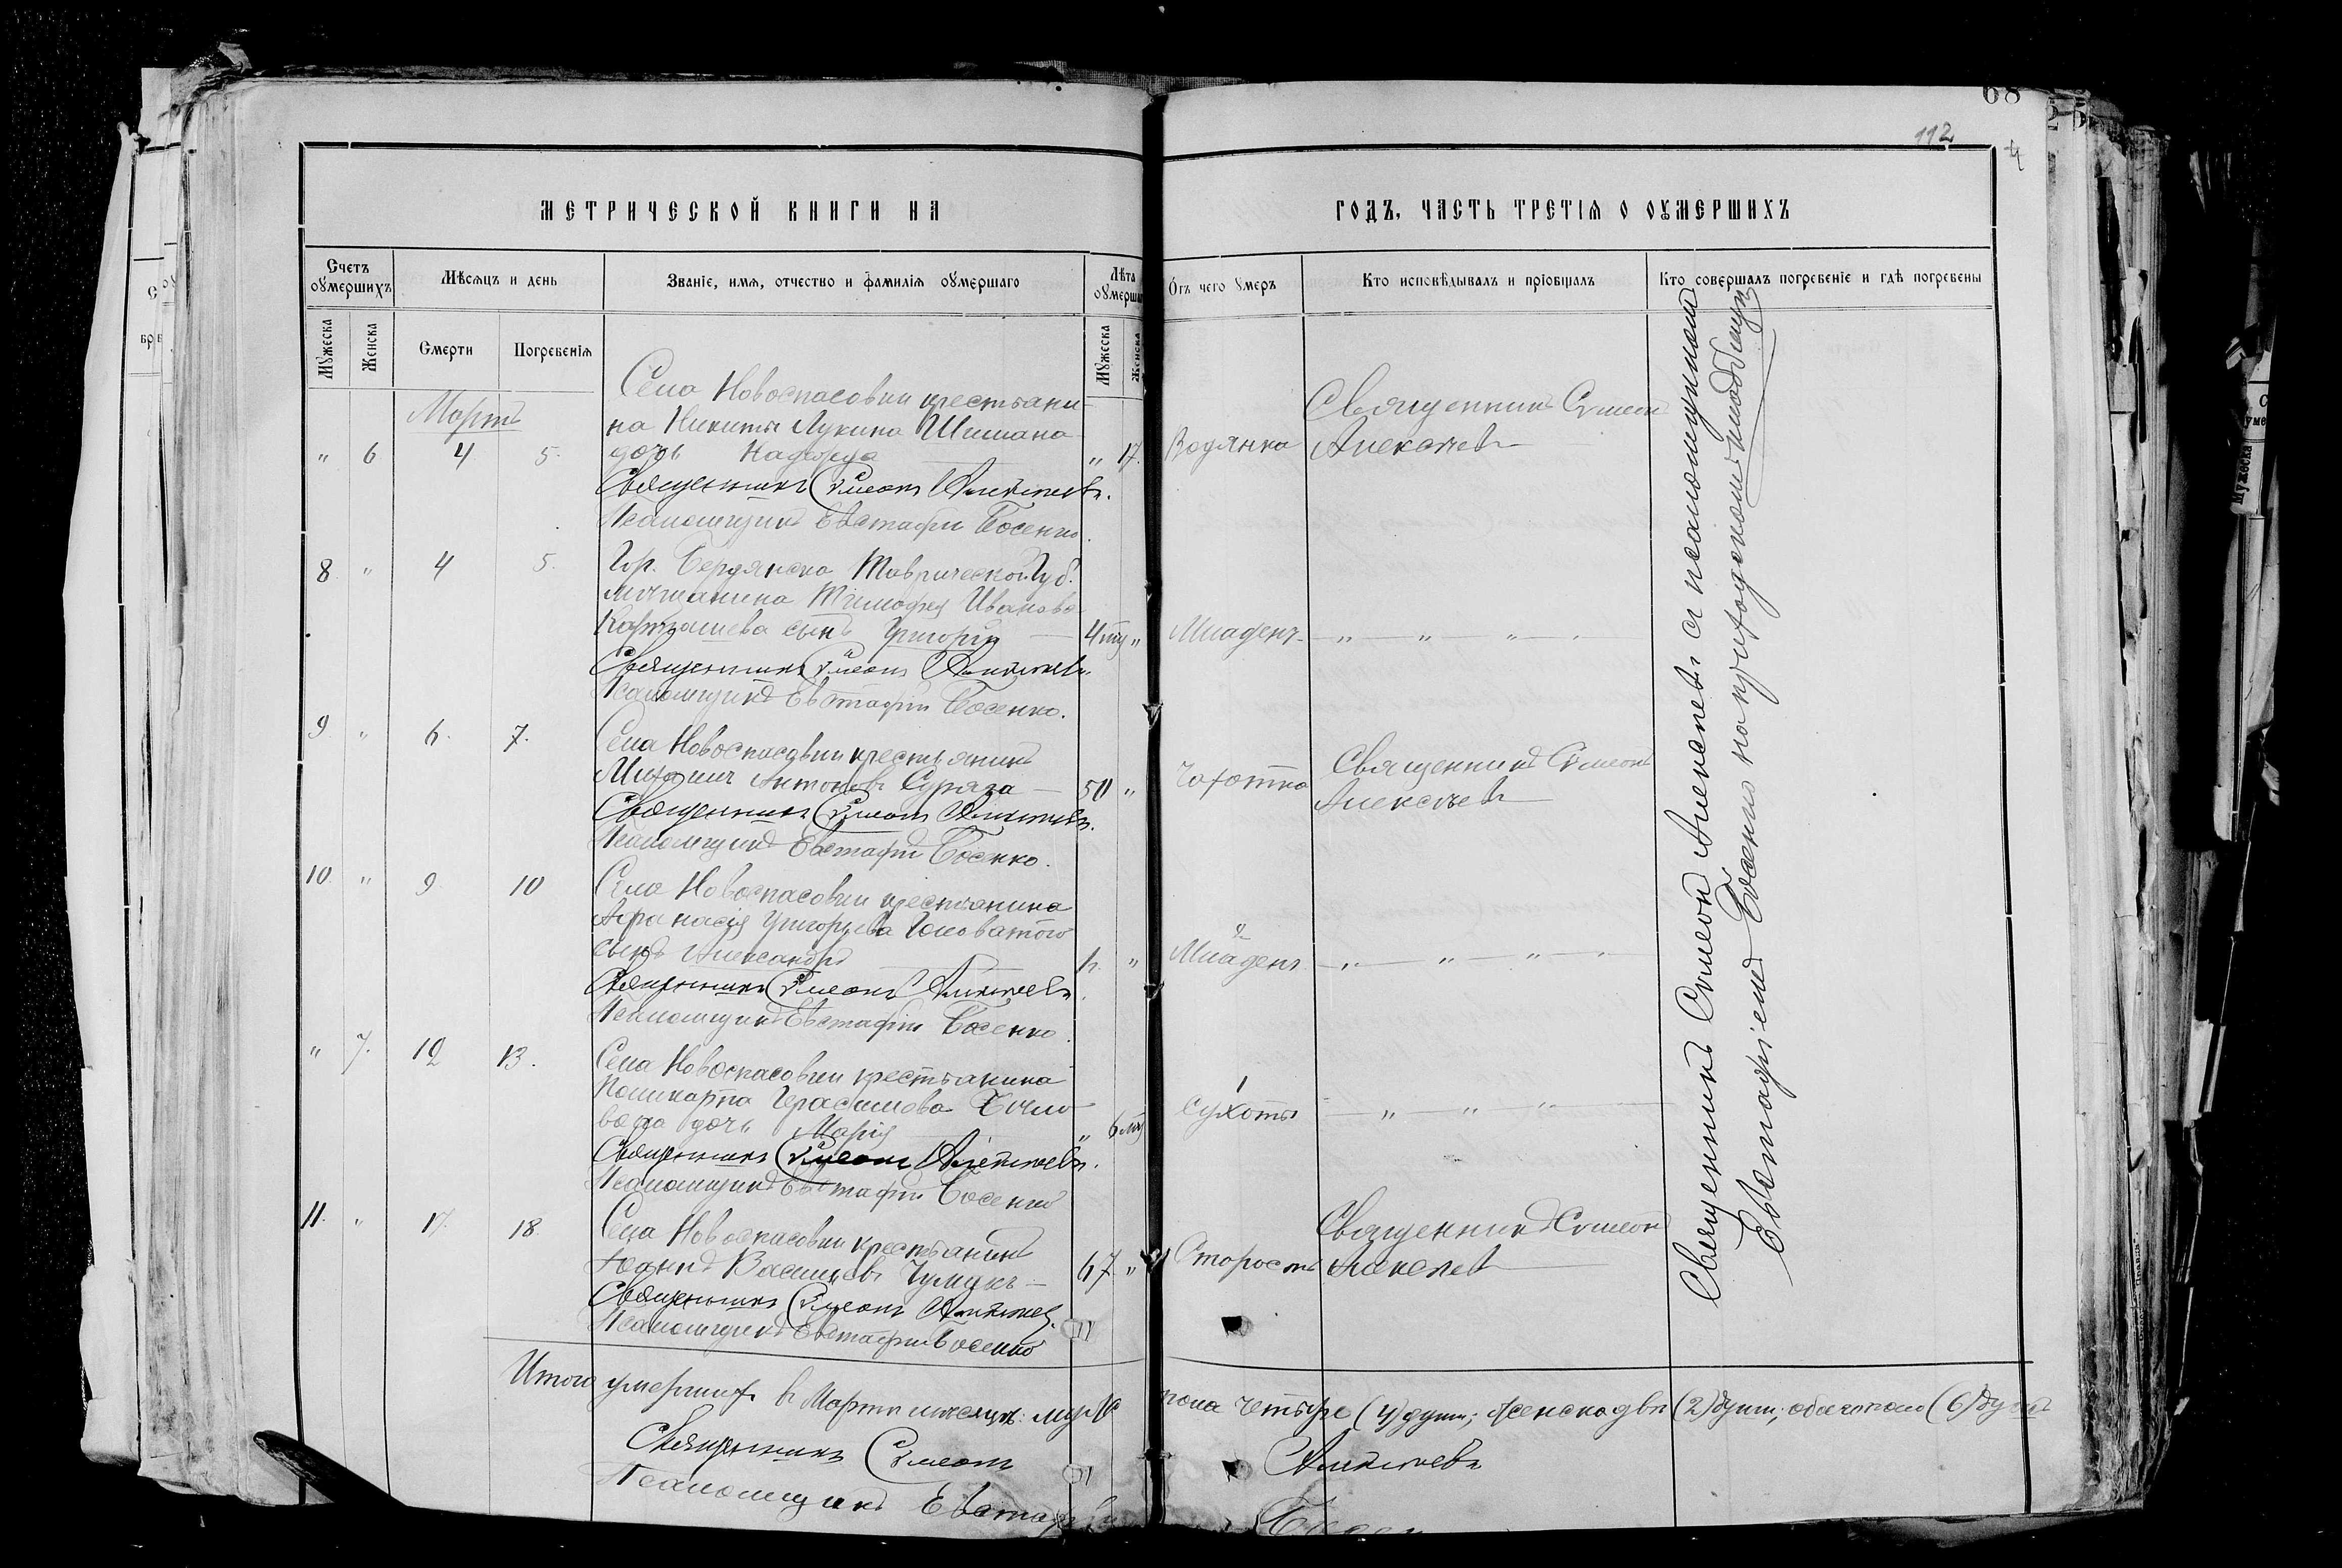 68
112
МЕТРИЧЕСКОЙ КНИГИ НА
ГОДЪ, ЧАСТЬ ТРЕТІЯ О ОУМЕРШИХЪ
Счетъ оумершихъ
Мѣсяцъ и день
Званіе, имя, отчество и фамилія оумершаго
Лѣта оумершаго
Отъ чего умеръ
Кто исповѣдывалъ и пріобщалъ
Кто совершалъ погребеніе и гдѣ погребены
Мужеска
Женска
Смерти
Погребенія
Мужеска
Женска
Мартъ
Села Новоспасовки крестьяни-
на Никиты Лукина Шишана
" 6 4 5 дочь Надежда " 17 Водянка
Священникъ Сѵмеонъ
Алексѣевъ
Священникъ Сѵмеонъ Алексѣевъ.
Псаломщикъ Евстафій Босенко.
8 " 4 5. Гор. Бердянска Таврической Губ.
мѣщанина Тимофея Иванова
сынъ Григорій 4 " Младенч. " " "
Священникъ Сѵмеонъ Алексѣевъ.
Псаломщикъ Евстафій Босенко.
9 " 6. 7. Села Новоспасовки крестьянинъ
Михаилъ Антоновъ 50 " Чахотка
Священникъ Сѵмеонъ
Алексѣевъ
Священникъ Сѵмеонъ Алексѣевъ.
Псаломщикъ Евстафій Босенко.
10 " 9 10 Села Новоспасовки крестьянина
Афанасія Григорьева Головатого
сынъ Александръ " Младенч. " " "
Священникъ Сѵмеонъ Алексѣевъ.
Псаломщикъ Евстафій Босенко.
" 7. 12 13. Села Новоспасовки крестьянина
Поликарпа Герасимова
дочь Марія " 6 Сухоты " " "
Священникъ Сѵмеонъ Алексѣевъ.
Псаломщикъ Евстафій Босенко
11. " 17. 18. Села Новоспасовки крестьянинъ
Василіевъ 67 " Старость
Священникъ Сѵмеонъ
Алексѣевъ
Священникъ Сѵмеонъ Алексѣевъ.
Псаломщикъ Евстафій Босенко
Священникъ Сѵмеонъ Алексѣевъ съ псаломщикомъ
Евстафіемъ Босенко на приходскомъ кладбищѣ
Итого умершихъ въ Мартѣ мѣсяцѣ: муж.
пола четыре (4) души; женска двѣ (2) души; обоего пола (6) душъ
Священникъ Сѵмеонъ Алексѣевъ
Псаломщикъ Евстафій